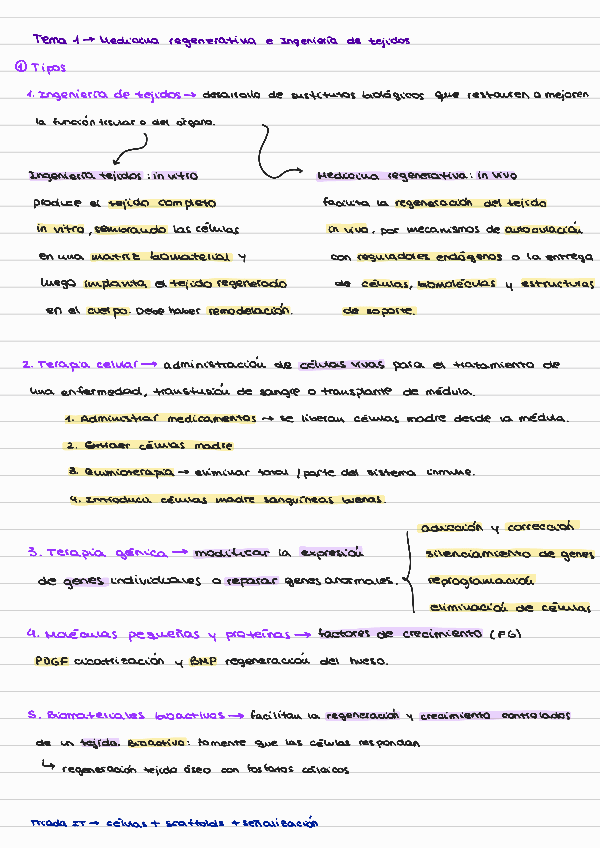 Tema 1 → Medicina regenerativa e Ingeniería de tejidos
① Tipos
1. Ingeniería de tejidos → desarrollo de sustitutos biológicos que restauren o mejoren
la función tisular o del órgano.
Ingeniería tejidos: in vitro
produce el tejido completo
in vitro, sembrando las células
en una matriz biomaterial y
luego implanta el tejido regenerado
en el cuerpo. Debe haber remodelación.
Medicina regenerativa: in vivo
facilita la regeneración del tejido
in vivo, por mecanismos de autocuración
con reguladores endógenos o la entrega
de células, biomoléculas y estructuras
de soporte.
2. Terapia celular → administración de células vivas para el tratamiento de
una enfermedad, transfusión de sangre o transplante de médula.
1. Administrar medicamentos → se liberan células madre desde la médula.
2. Extraer células madre
3. Quimioterapia → eliminar total / parte del sistema inmune.
4. Introducir células madre sanguíneas buenas.
3. Terapia génica → modificar la expresión
de genes individuales o reparar genes anormales.
adicción y corrección
silenciamiento de genes
reprogramación
eliminación de células
4. Moléculas pequeñas y proteínas → factores de crecimiento (FG)
PDGF cicatrización y BMP regeneración del hueso.
5. Biomateriales bioactivos → facilitan la regeneración y crecimiento controlados
de un tejido. Bioactivo: fomente que las células respondan
↳ regeneración tejido óseo con fosfatos cálcicos
Triada IT → células + scaffolds + señalización